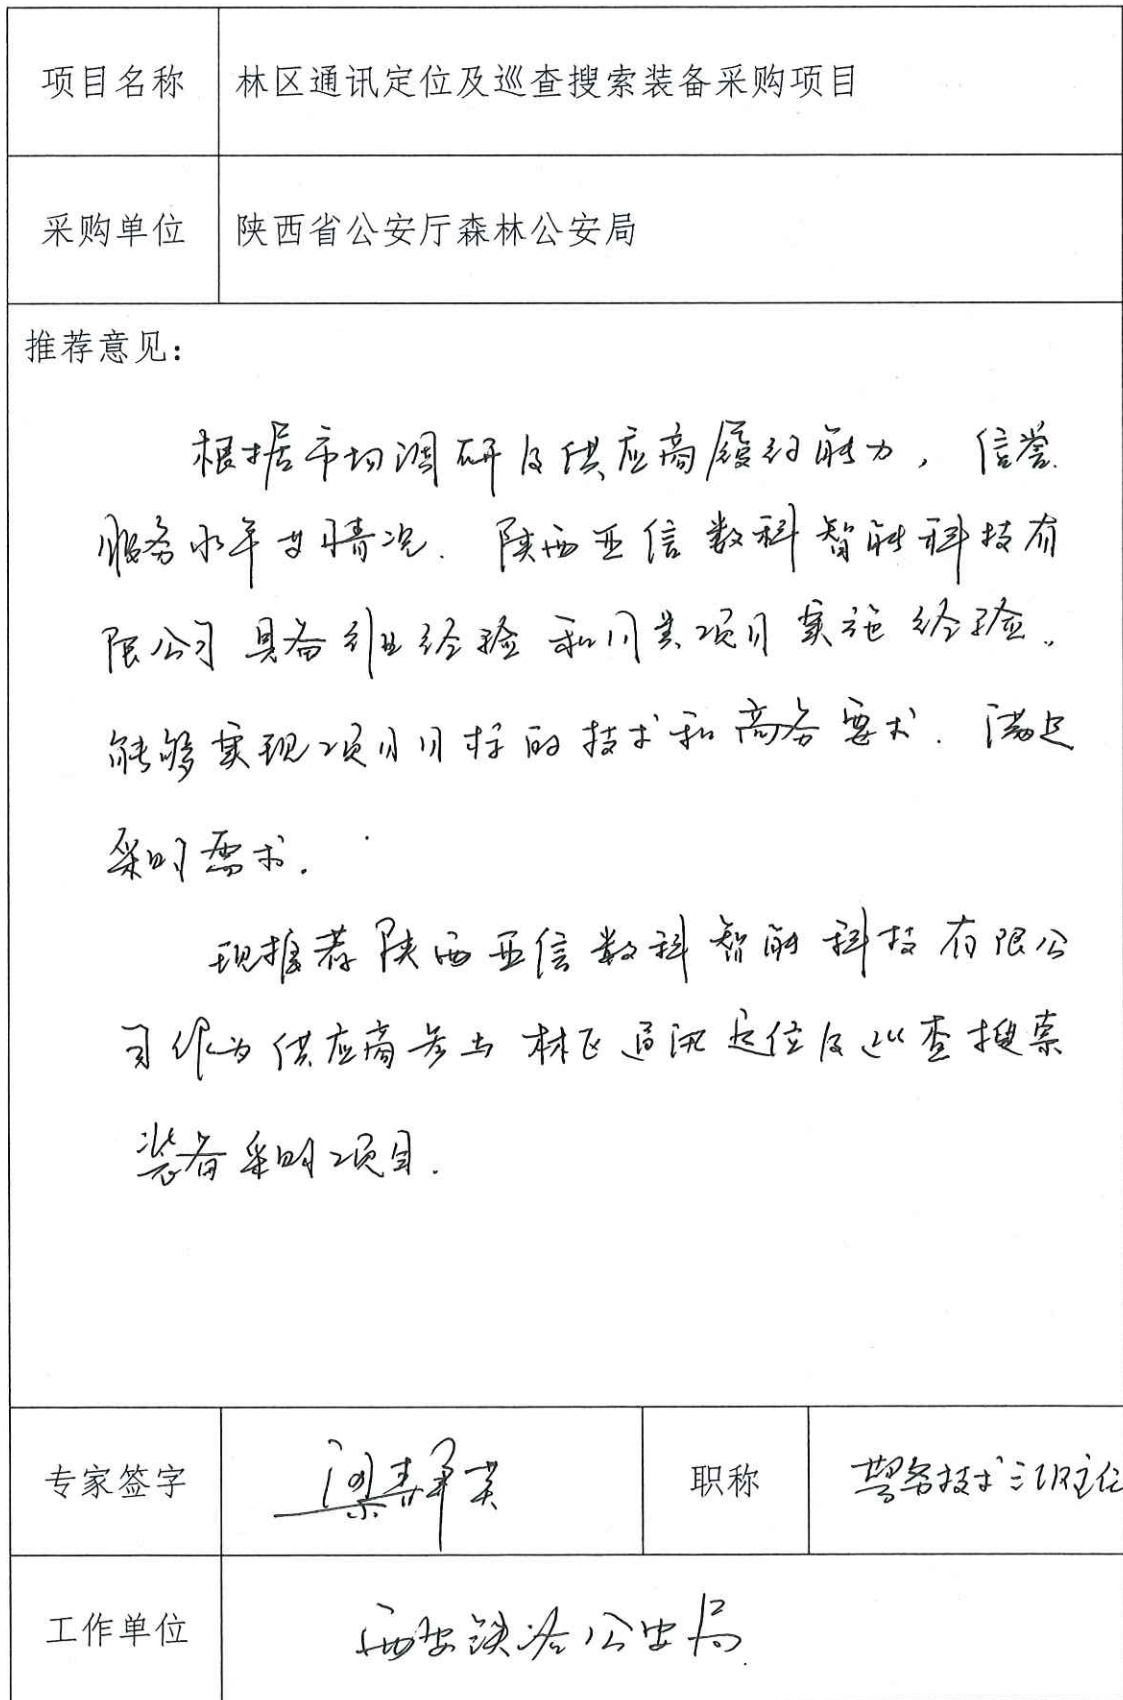 项目名称 林区通讯定位及巡查搜索装备采购项目
采购单位 陕西省公安厅森林公安局
推荐意见：
根据市场调研及供应商履约能力，信誉.
服务水平等情况. 陕西亚信数科智能科技有
限公司具备行业经验和同类项目实施经验。
能够实现项目目标的技术和商务要求. 满足
采购需求.
现推荐陕西亚信数科智能科技有限公
司作为供应商参与林区通讯定位及巡查搜索
装备采购项目.
专家签字 梁静英 职称 警务技术三级主任
工作单位 西安铁路公安局